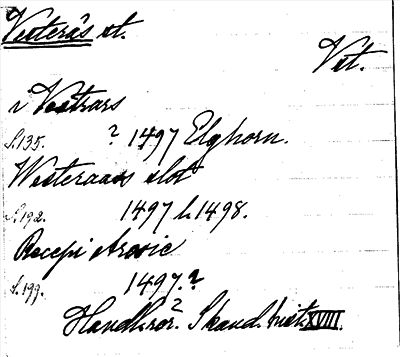 Västerås st.
Vst.
i Westrars
S.135. ? 1497 Elghorn.
Westeraas slot
S.192. 1497 l. 1498.
Recepi Arosie
S.199. 1497.?
Handl. rör. Skand. hist. XVIII.
2